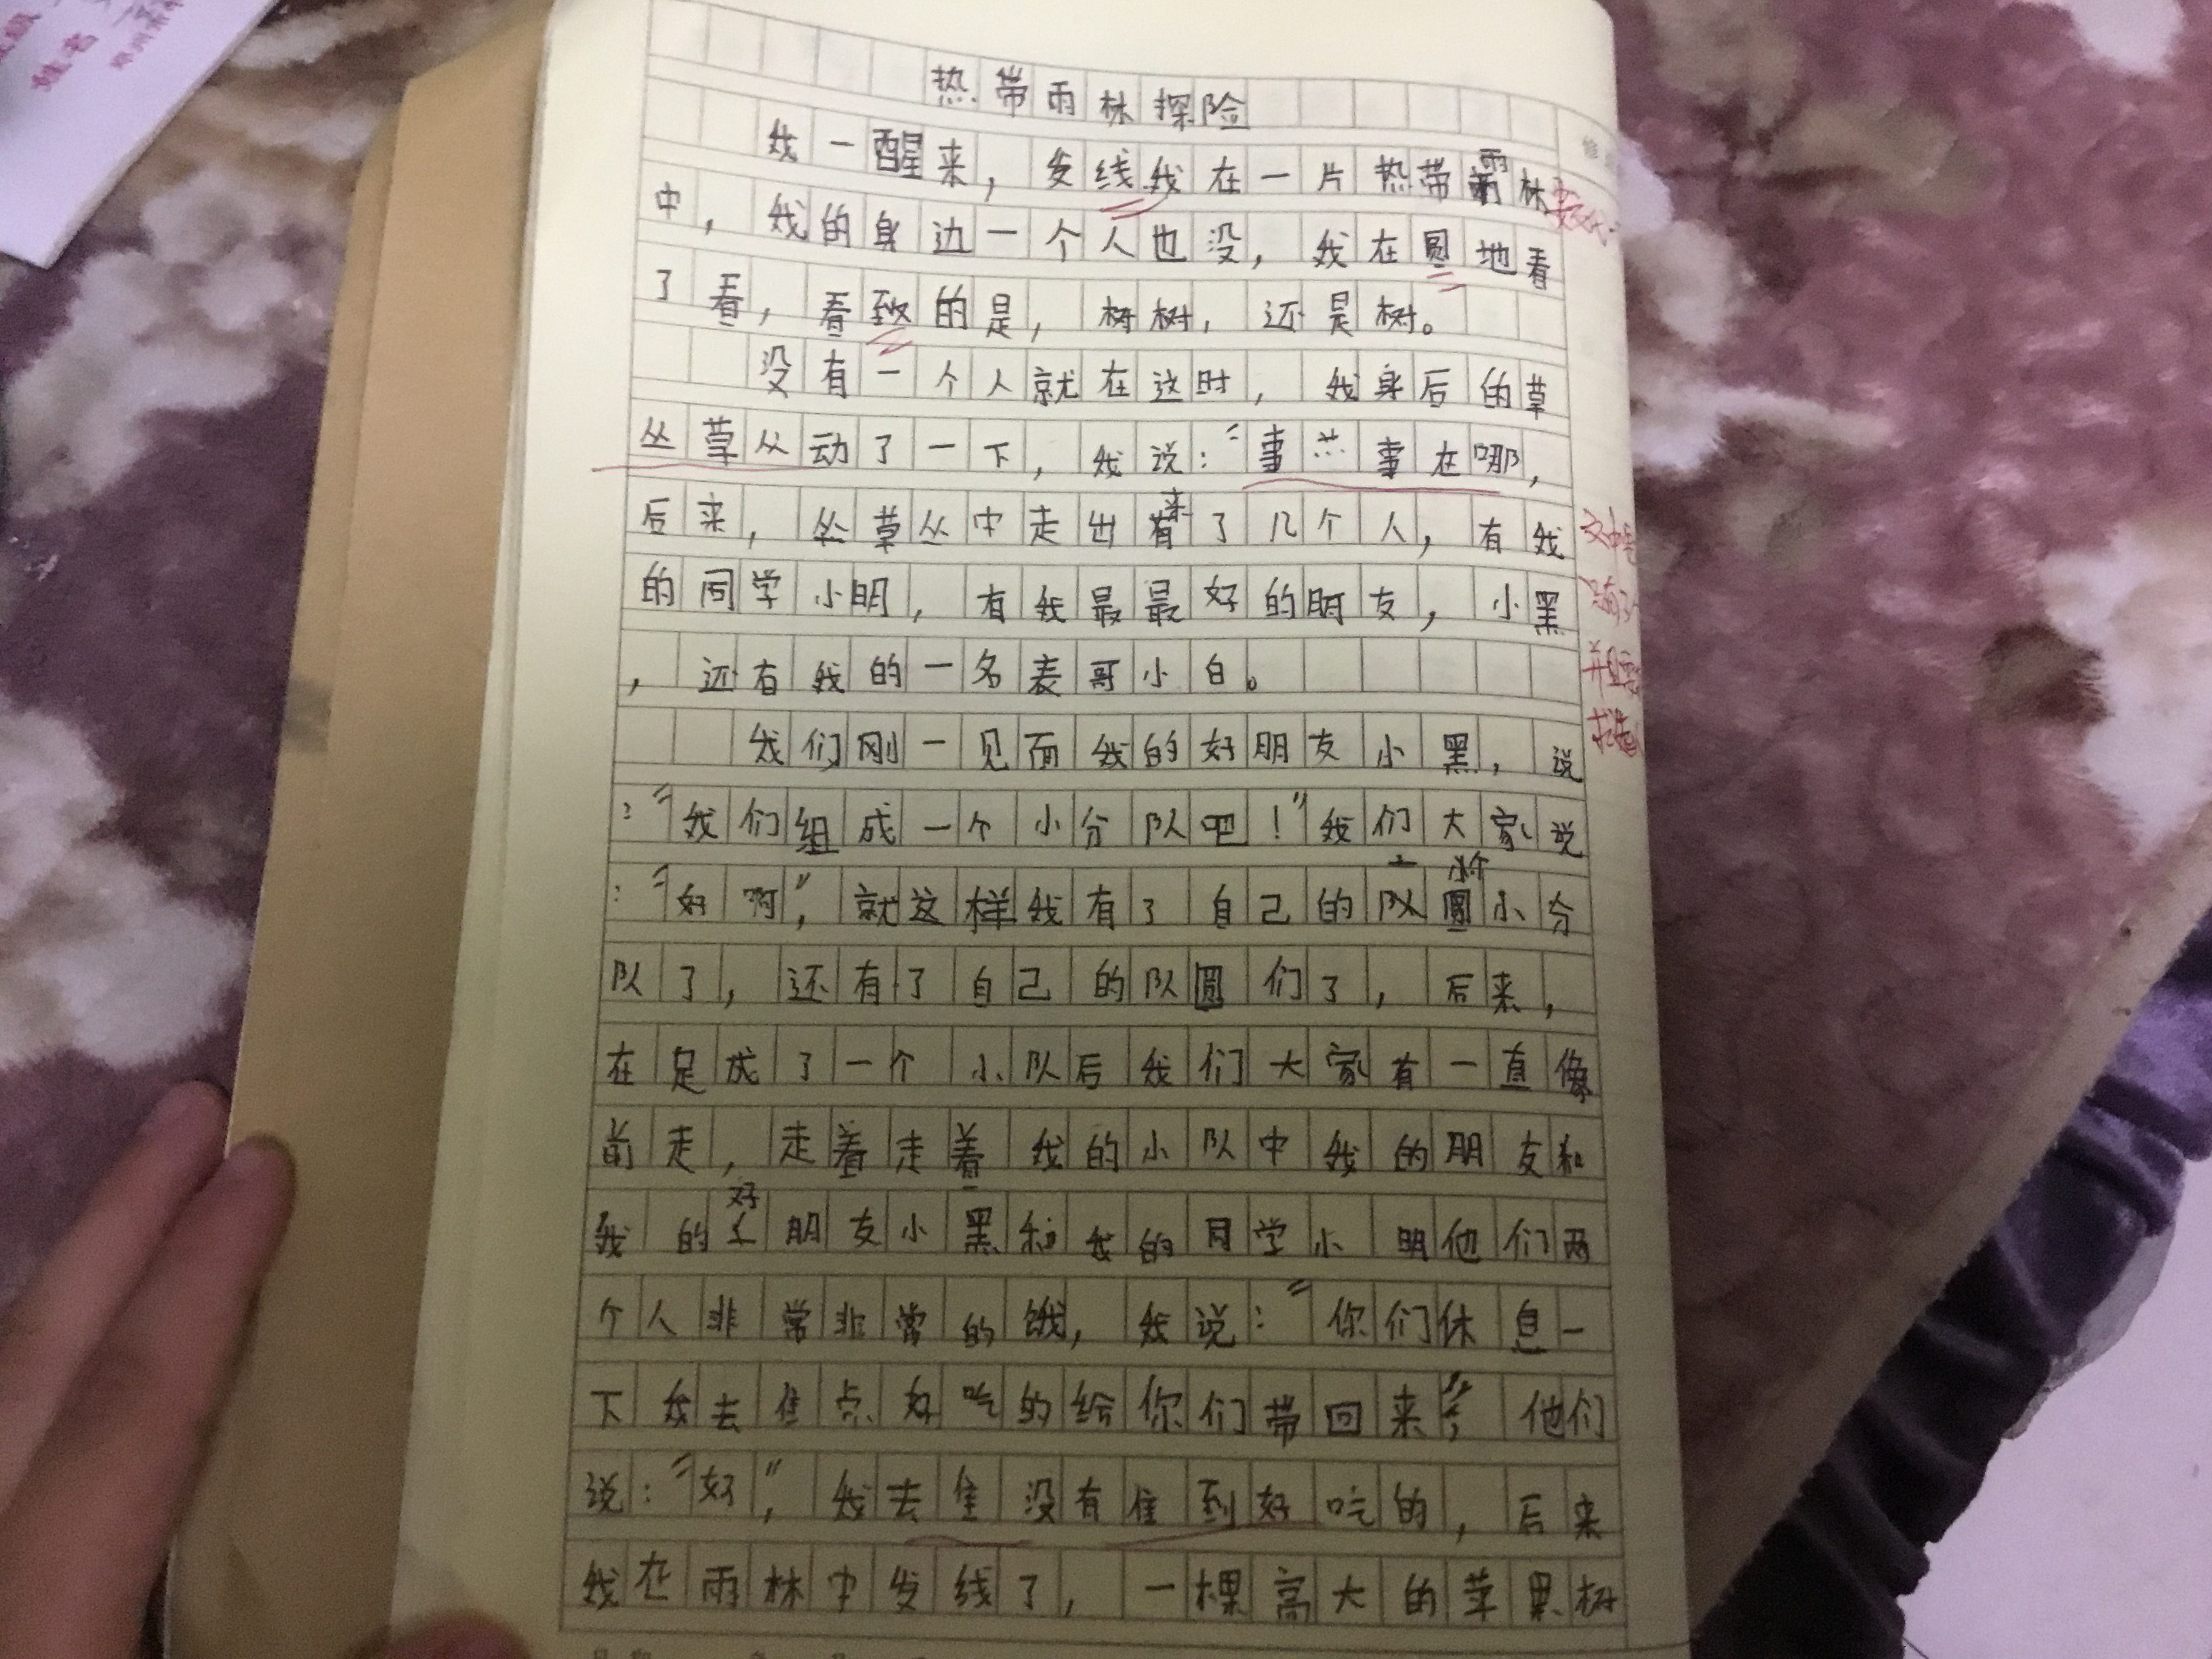 姓名
热带雨林探险
我一醒来，发线我在一片热带雨林
中，我的身边一个人也没，我在圆地看
了看，看致的是，树树，还是树。
没有一个人就在这时，我身后的草
丛草丛动了一下，我说：“事在哪，
后来，丛草丛中走出来了几个人，有我
的同学小明，有我最最好的朋友，小黑
，还有我的一名表哥小白。
我们刚一见面我的好朋友小黑，说
：“我们组成一个小分队吧！”我们大家说
：“好啊”，就这样我有了自己的队小分
队了，还有了自己的队圆们了，后来，
在足成了一个小队后我们大家有一直像
前走，走着走着我的小队中我的朋友和
我的好朋友小黑和我的同学小明他们两
个人非常非常的饿，我说：“你们休息一
下我去隹点好吃的给你们带回来”，他们
说：“好”，我去隹没有隹到好吃的，后来
我在雨林中发线了，一棵高大的苹果树